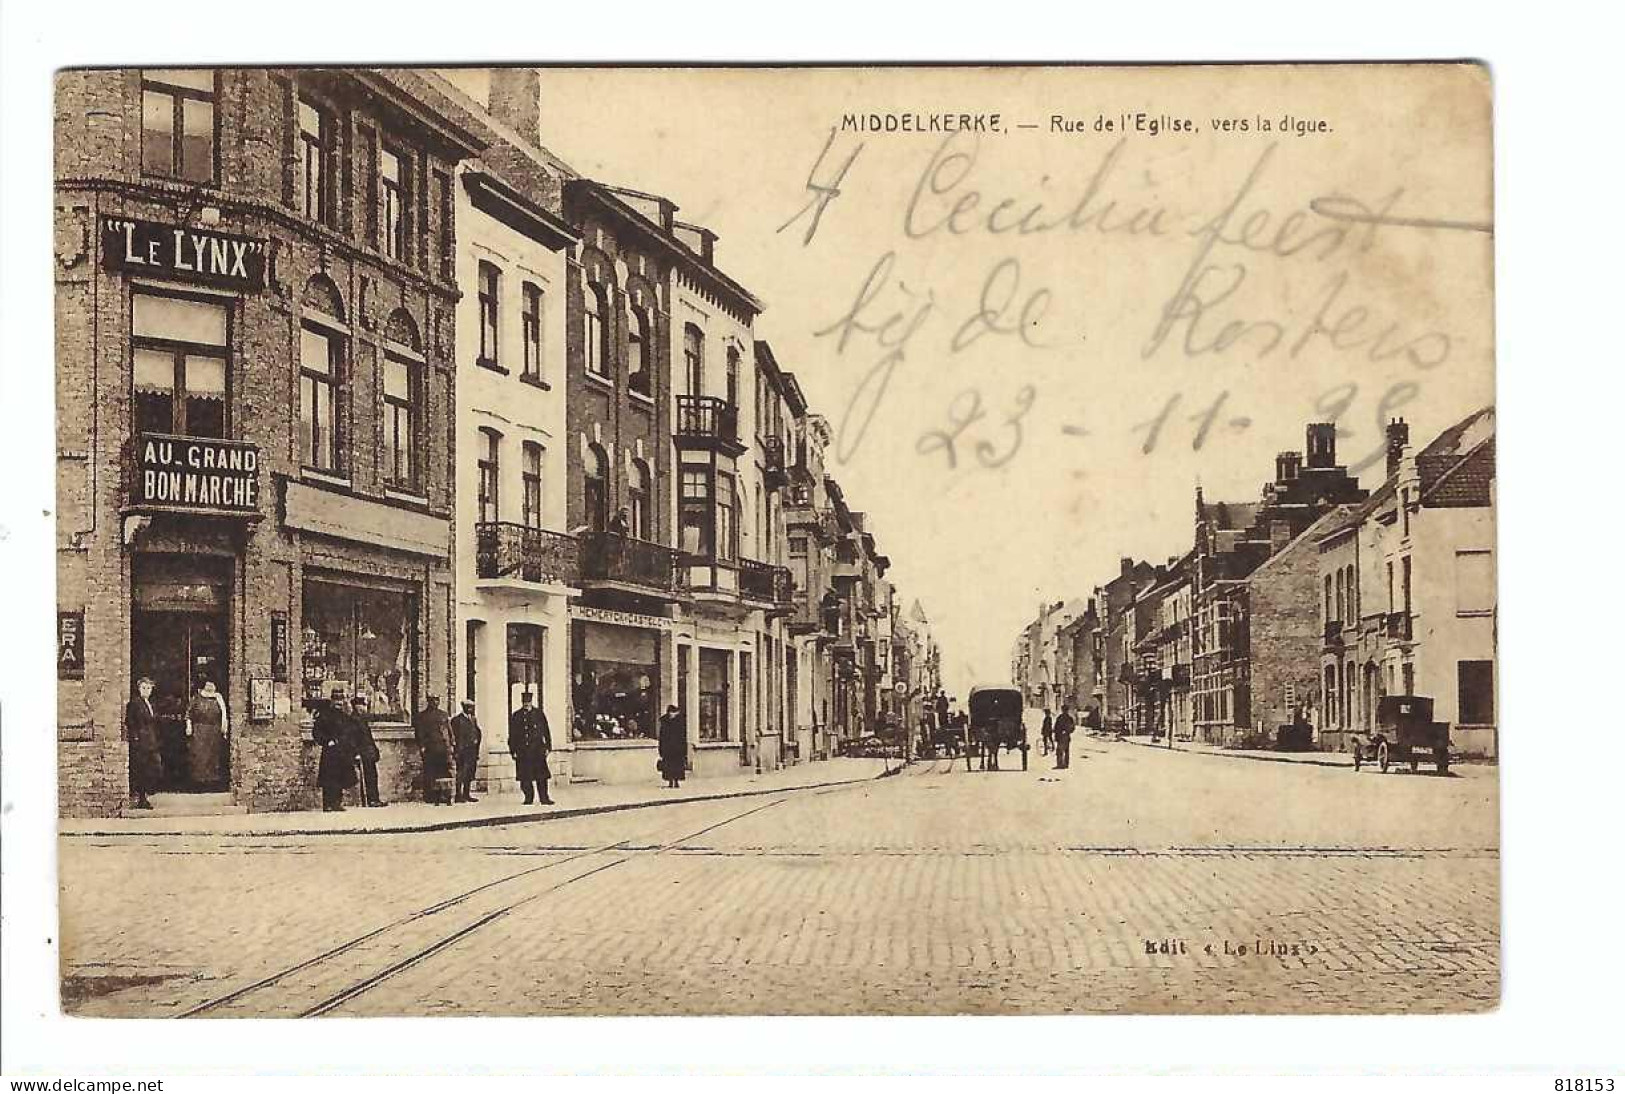 MIDDELKERKE. — Rue de l'Eglise, vers la digue.
't Ceciliafeest
bij de Kosters
23-11-25
"LE LYNX"
AU-GRAND
BON MARCHÉ
ERA
ERA
Edit « Le Linx »
www.delcampe.net
818153